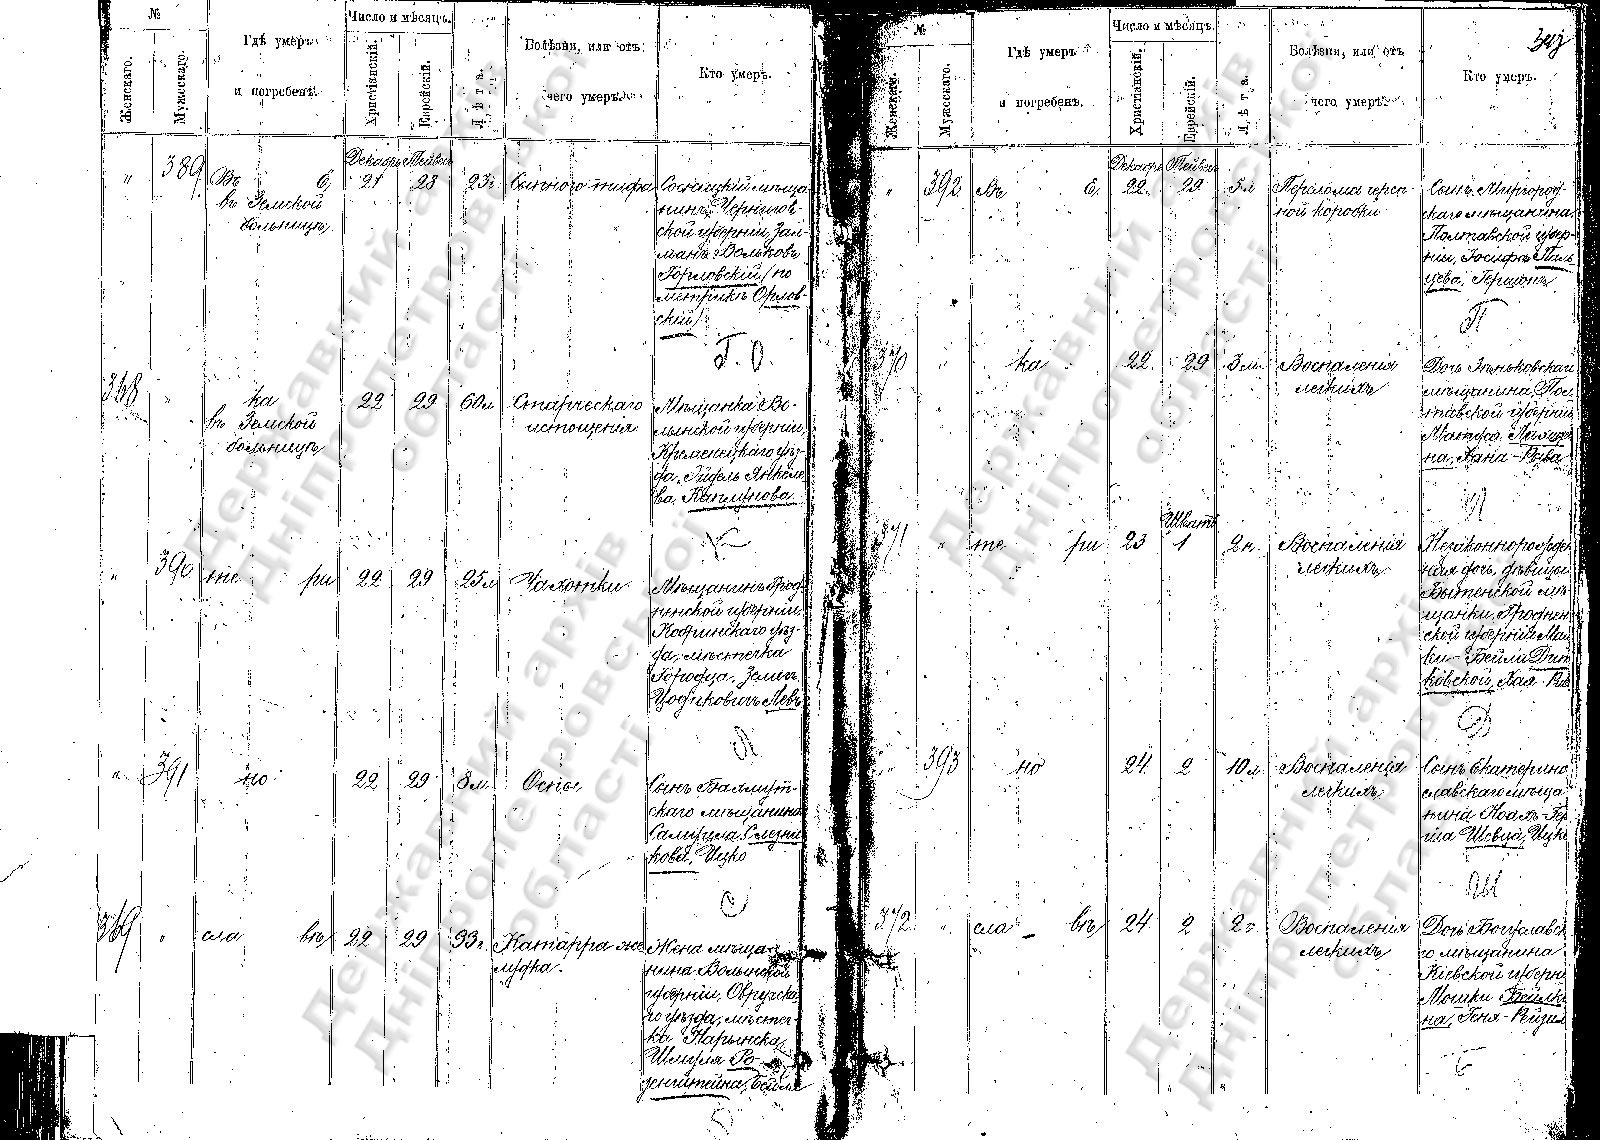 №
Число и мѣсяцъ.
Женскаго.
Мужескаго.
Гдѣ умеръ
и погребенъ.
Христіанскій.
Еврейскій.
Лѣта.
Болѣзни, или отъ
чего умеръ.
Кто умеръ.
"
389
Въ Е,
въ Земской
больницѣ
Декабрь
21
Тейвесъ
28
23 г.
Сыпного тифа
Сосницкій мѣща-
нинъ, Чернигов-
ской губерніи, Зал-
манъ Вольковъ
Горловскій / по
метрикѣ Орлов-
скій /
Г. О.
368
"
ка
въ Земской
больницѣ
22
29
60 л
Старческаго
истощения
Мѣщанка Во-
лынской губерніи,
Кременецкаго уѣз-
да,
Янкеле
ва,
К
"
390
те ри
22
29
25 л
Чахотки
Мѣщанинъ Грод-
ненской губерніи
Кобринскаго уѣз-
да, мѣстечка
Городца,
Левъ
Л
"
391
но
22
29
8 м.
Оспы
Сынъ Бахмут-
скаго мѣщанина
Самуила Слезни
кова, Ицко
С
369
"
сла въ
22
29
33 г.
Катарра же
лудка.
Жена мѣща-
нина Волынской
губерніи, Овручска
го уѣзда, мѣстеч-
ка Нарынска,
Шмуля Ро-
зенштейна, Бейля
Р
№
Число и мѣсяцъ.
Женскаго.
Мужескаго.
Гдѣ умеръ
и погребенъ.
Христіанскій.
Еврейскій.
Лѣта.
Болѣзни, или отъ
чего умеръ.
Кто умеръ.
"
392
Въ Е,
Декабрь
22.
Тейвесъ
29
5 л
Перелома череп
ной коробки
Сынъ Миргород-
скаго мѣщанина,
Полтавской губер-
ніи, Іосифа Паль
цева, Гершонъ
П
370
"
ка
22.
29
3 м.
Воспаленія
легкихъ
Дочь Зѣньковскаго
мѣщанина, Пол-
тавской губерніи,
на, Хана-Рива
Л
371
"
те ри
23
Шватъ
1
2 н.
Воспаленія
легкихъ
Незаконнорожден
ная дочь, дѣвицы
Бытенской мѣ-
щанки, Гроднен-
ской губерніи Мал
ки-Бейли Дит
ковской, Хая-
Д
"
393
но
24.
2
10 м.
Воспаленія
легкихъ
Сынъ Екатерино
славскаго мѣща
нина Ноахъ-Гер
ша Шевца, Ицко
Ш
372
"
сла - въ
24.
2
2 г.
Воспаленія
легкихъ
Дочь Богуславск
го мѣщанина
Кіевской губерн
Мошки Бейлки
на, Геня-Рейзя
Б
Державний архів
Дніпропетровської
області